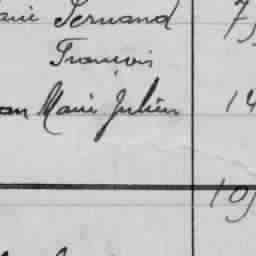 arie Fernand 7
François
an Marie Julien 14
10